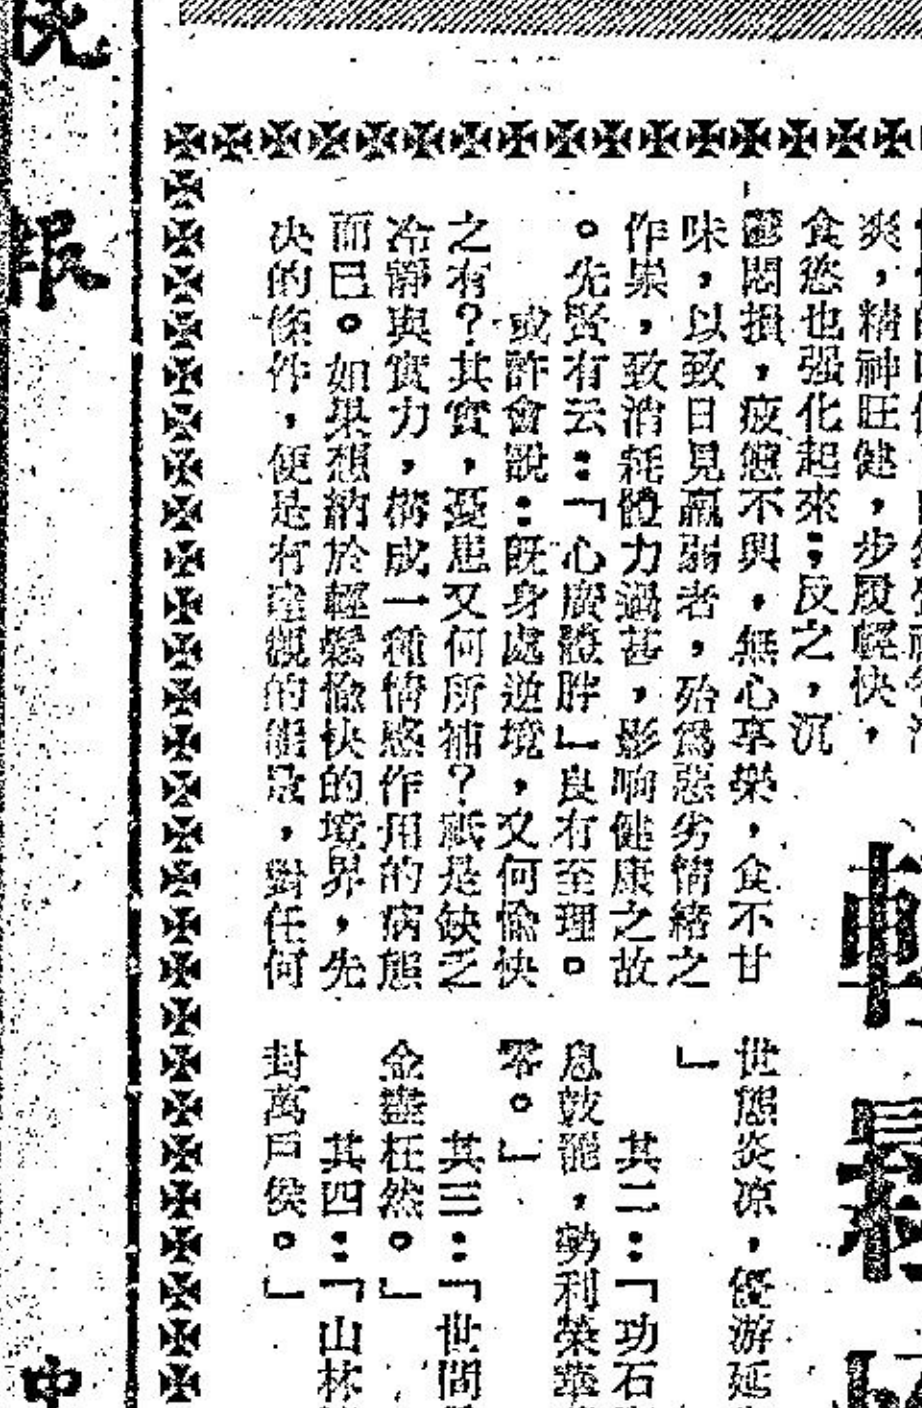 爽，精神旺健，步履輕快，
食慾也强化起來；反之，沉
鬱悶損，疲憊不興，無心享樂，食不甘
味，以致日見羸弱者，殆爲惡劣情緒之
作祟，致消耗體力過甚，影响健康之故
。先賢有云：「心廣體胖」良有至理。
或許會說：旣身處逆境，又何愉快
之有？其實，憂患又何所補？祇是缺乏
冷靜與實力，構成一種情感作用的病態
而已。如果想納於輕鬆愉快的境界，先
决的條件，便是有達觀的能度，對任何
世態炎凉，優游延
」
其二：「功石
息鼓罷，勢利榮華
零。」
其三：「世間
金盡枉然。」
其四：「山林
封萬戶侯。」
輕鬆
民報
中